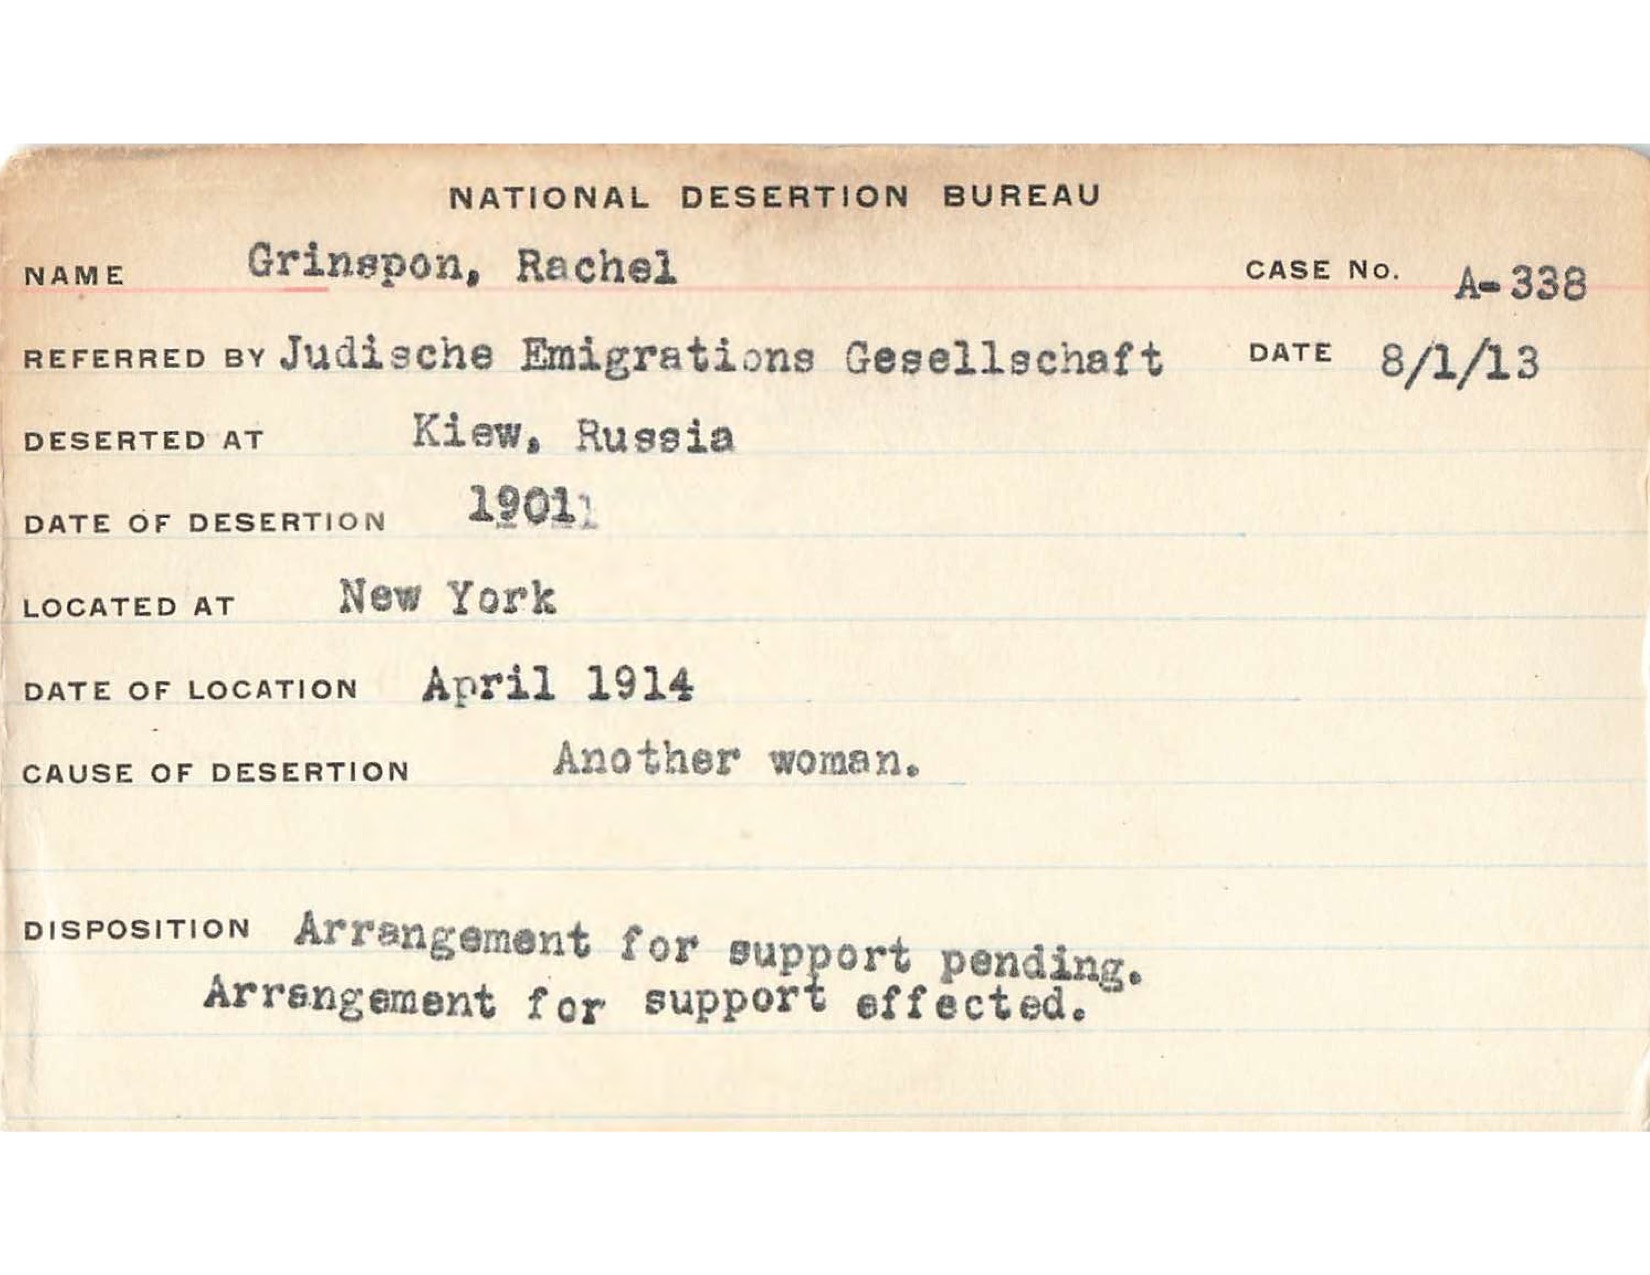 NATIONAL DESERTION BUREAU
NAME Grinspon, Rachel CASE No. A-338
REFERRED BY Judische Emigrations Gesellschaft DATE 8/1/13
DESERTED AT Kiew, Russia
DATE OF DESERTION 1901
LOCATED AT New York
DATE OF LOCATION April 1914
CAUSE OF DESERTION Another woman.
DISPOSITION Arrangement for support pending.
Arrangement for support effected.